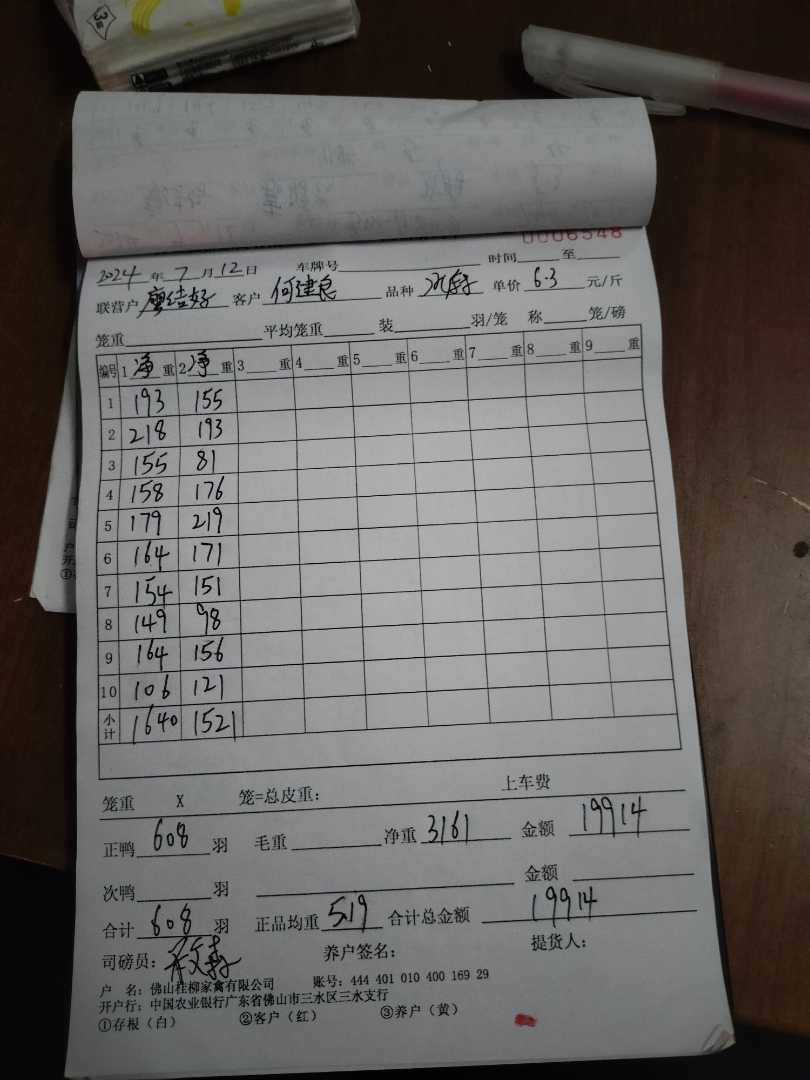 0006548
2024年7月12日 车牌号 时间 至
联营户 廖结好 客户 何建良 品种 单价 6.3 元/斤
笼重 平均笼重 装 羽/笼 称 笼/磅
编号 1 净 重 2 净 重 3 重 4 重 5 重 6 重 7 重 8 重 9 重
1 193 155
2 218 193
3 155 81
4 158 176
5 179 219
6 164 171
7 154 151
8 149 98
9 164 156
10 106 121
小计 1640 1521
笼重 X 笼=总皮重: 上车费
正鸭 608 羽 毛重 净重 3161 金额 19914
次鸭 羽 金额
合计 608 羽 正品均重 5.19 合计总金额 19914
司磅员: 养户签名: 提货人:
户 名: 佛山桂柳家禽有限公司 账号: 444 401 010 400 169 29
开户行: 中国农业银行广东省佛山市三水区三水支行
①存根（白） ②客户（红） ③养户（黄）